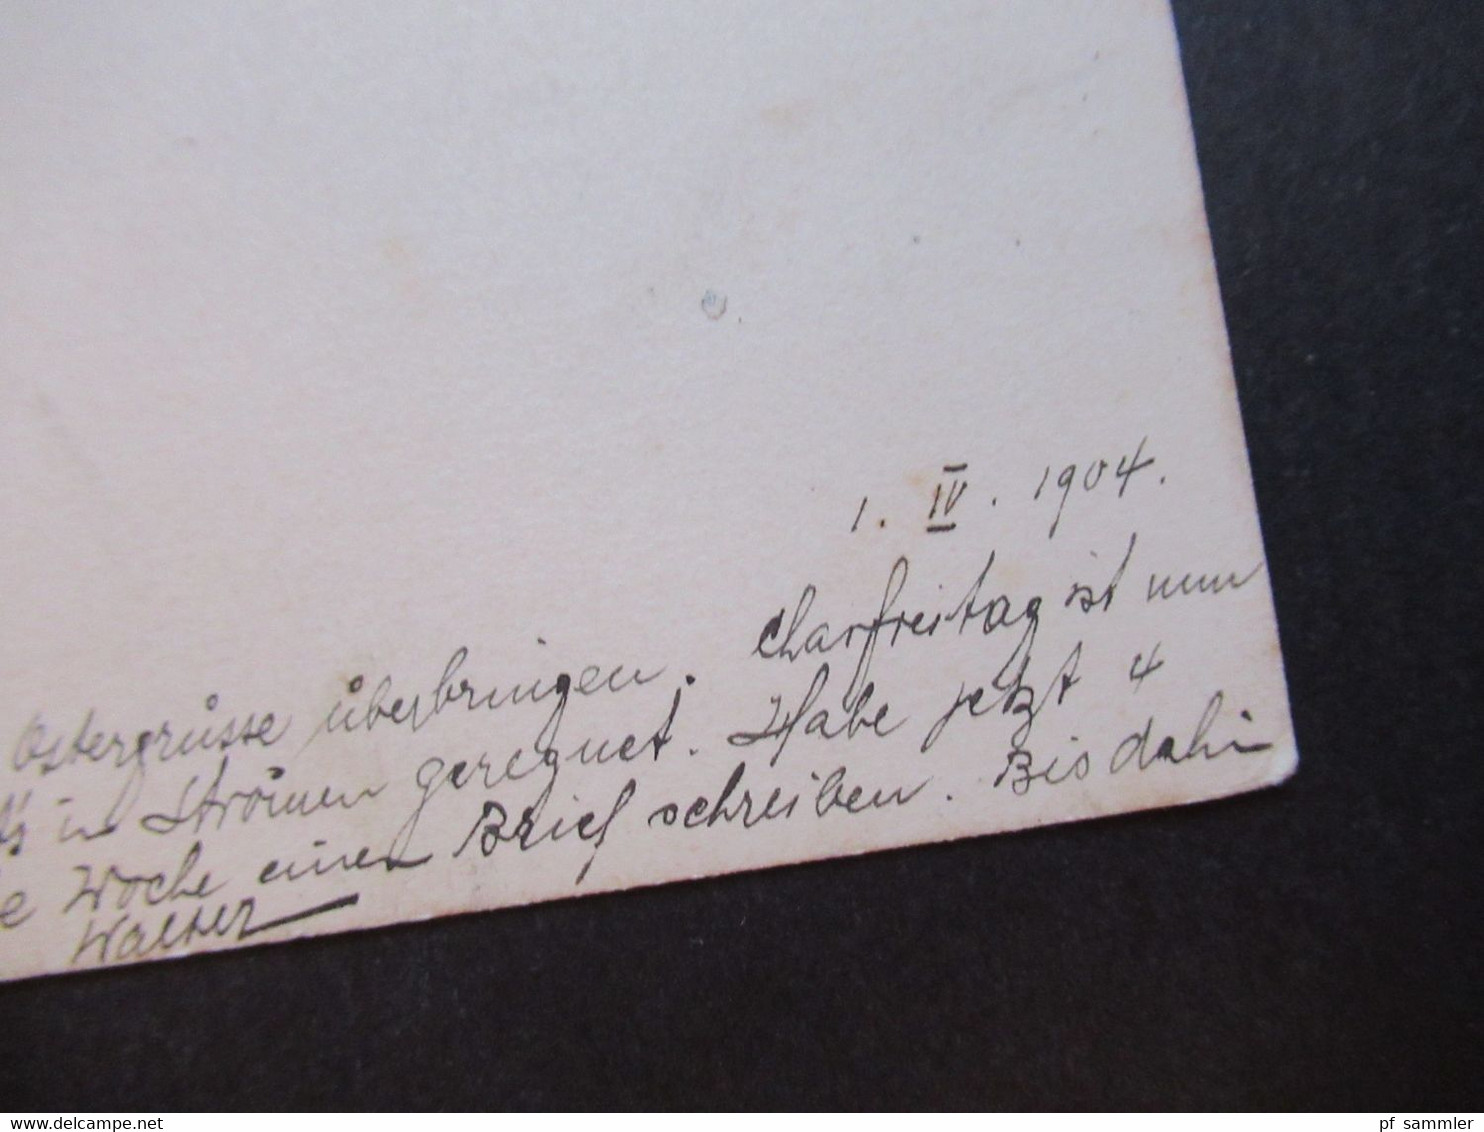 1. IV. 1904.
Ostergrüsse überbringen. Charfreitag ist nun
in Strömen geregnet. Habe jetzt 4
Woche einen Brief schreiben. Bis dahin
Walter
pf sammler
delcampe.net